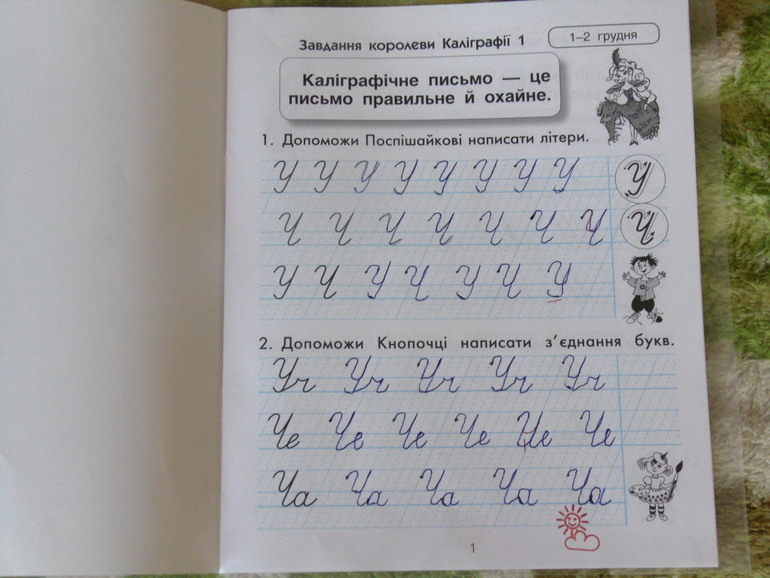 Завдання королеви Каліграфії 1
1–2 грудня
Каліграфічне письмо — це
письмо правильне й охайне.
1. Допоможи Поспішайкові написати літери.
У У У У У У У У У
Ч Ч Ч Ч Ч Ч Ч Ч
У Ч У Ч У Ч У
2. Допоможи Кнопочці написати з’єднання букв.
Уч Уч Уч Уч Уч
Че Че Че Че Че Че
Ча Ча Ча Ча Ча
1